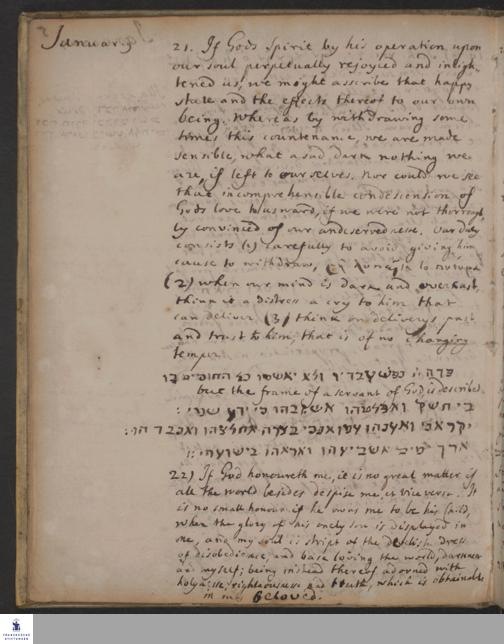 January
21. If Gods Spirit by his operation upon
our soul perpetually rejoyced and inligh-
tened us, we might ascribe that happy
state and the effects thereof to our own
being. Whereas by withdrawing some
times this countenance, we are made
sensible, what a sad dark nothing we
are, if left to ourselves. Nor could we see
that incomprehensible condescention of
Gods love to usward, if we were not thorough
ly convinced of our undeservednesse. Our duty
consists (1) carefully to avoid giving him
cause to withdraw,
(2) when our mind is dark and overcast,
a distress a cry to him that
can deliver (3) think on deliverys past
and trust to him, that is of no changing
temper.
פדה יי נפש עבדיו ולא יאשמו כל החוסים בו
but the frame of a servant of God is described
בי חשק ואפלטהו אשגבהו כי ידע שמי:
יקראני ואענהו עמו אנכי בצרה אחלצהו ואכבדהו:
ארך ימים אשביעהו ואראהו בישועתי:
22) If God honoureth me, it is no great matter if
all the world besides despise me, et vice verse. It
is no small honour if he owns me to be his Child,
when the glory of his onely son is displayed in
me, and my soul is stript of the devlish dress
of disobedience, and base loving the world, darkness
and myself; being instead thereof adorned with
holynesse, righteousness and truth, which is obtainable
in my Beloved.